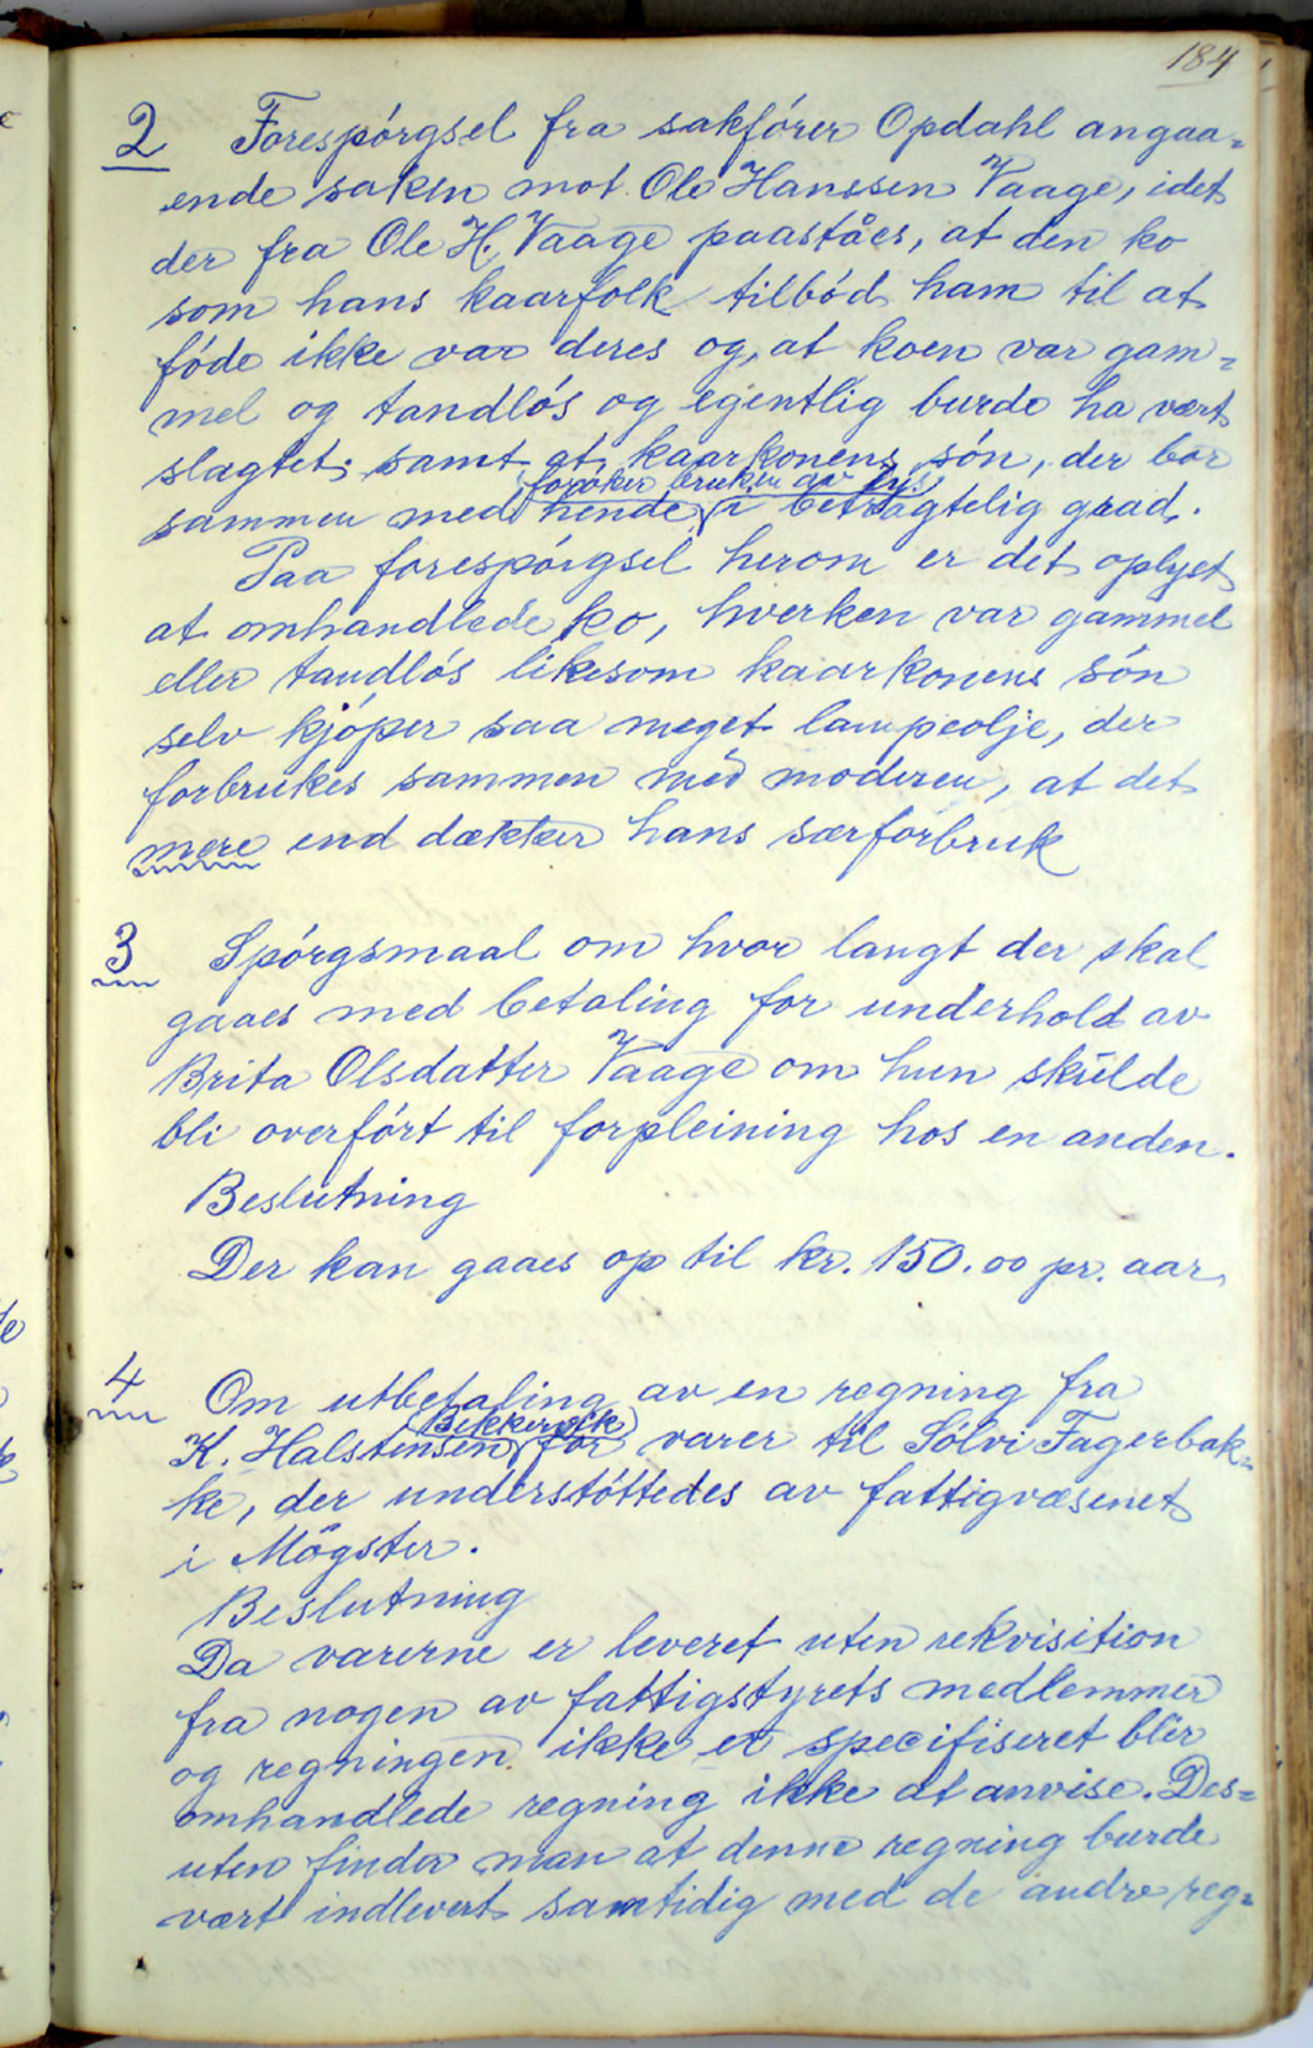 184
2 Forespórgsel fra sakfórer Opdahl angaa=
ende saken mot Ole Hanssen Vaage, idet
der fra Ole H. Vaage paaståes, at den ko
som hans kaarfolk tilbód ham til at
fóde ikke var deres og, at koen var gam=
mel og tandlós og egentlig burde ha vært
slagtet; samt at kaarkonens són, der bor
foróker bruken av lys
sammen med hende i betragtelig grad.
Paa forespórgsel herom er det oplyst
at omhandlede ko, hverken var gammel
eller tandlós likesom kaarkonens són
selv kjóper saa meget lampeolje, der
forbrukes sammen med moderen, at det
mere end dækker hans særforbruk
3 Spórgsmaal om hvor langt der skal
gaaes med betaling for underhold av
Brita Olsdatter Vaage om hun skulde
bli overfórt til forpleining hos en anden.
Beslutning
Der kan gaaes op til kr. 150.00 pr. aar.
4 Om utbetaling av en regning fra
(Bekkervik)
K. Halstensen for varer til Sólvi Fagerbak=
ke, der understóttedes av fattigvæsenet
i Mögster.
Beslutning
Da varerne er leveret uten rekvisition
fra nogen av fattigstyrets medlemmer
og regningen ikke er specifiseret blir
omhandlede regning ikke at anvise. Des=
uten finder man at denne regning burde
vært indlevert samtidig med de andre reg=